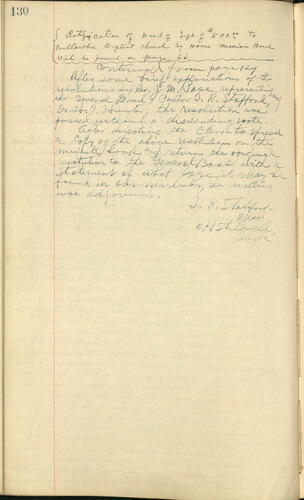 130
Ratification of Deed of Gift of $500.00 To
Cullowhee Baptist church by Home Mission Board
will be found on page 66
Continued from page 129
After some brief explanations of the
resolutions by Rev. J. M. Page, representing
the General Board, & Pastor T. K. Stafford, and
Geo. T. the resolution was
passed without a dissenting vote.
After directing the Clerk to spread
a copy of the above resolutions on the
minute book and return the original
resolution to the General Board with a
statement of what page it may be
found in our minutes, the meeting
was adjourned.
T. K. Stafford
Mod.
Clerk